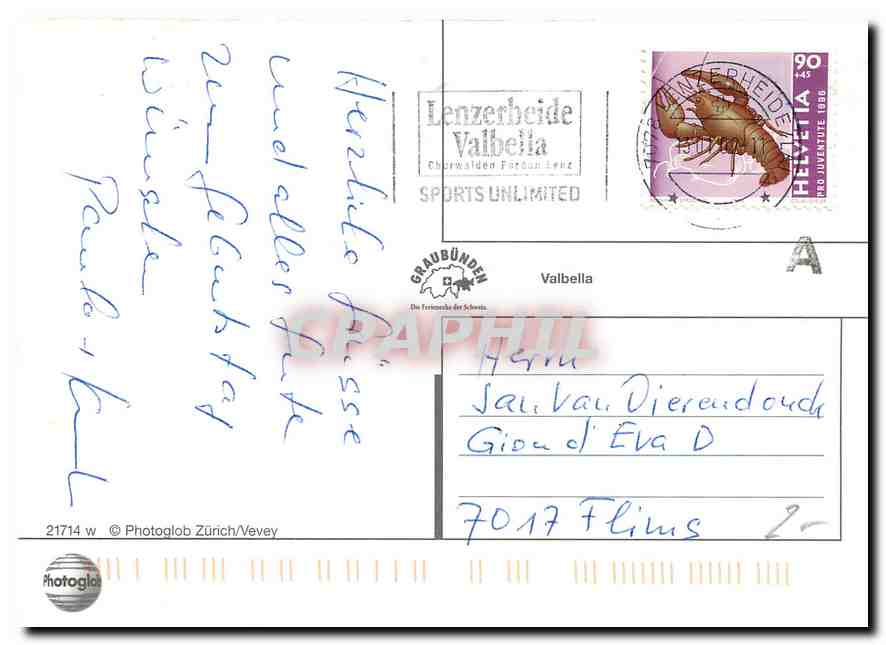 Herzliche Grüsse
und alles Gute
zum Geburtstag
wünschen
Lenzerheide
Valbella
Churwalden Parpan Lenz
SPORTS UNLIMITED
90
+45
HELVETIA
PRO JUVENTUTE 1996
LENZERHEIDE
A
GRAUBÜNDEN
Die Ferienecke der Schweiz.
Valbella
CPAPHIL
Herrn
Jan Van Dierendonck
Gion d'Eva D
7017 Flims
2.-
21714 w © Photoglob Zürich/Vevey
Photoglob